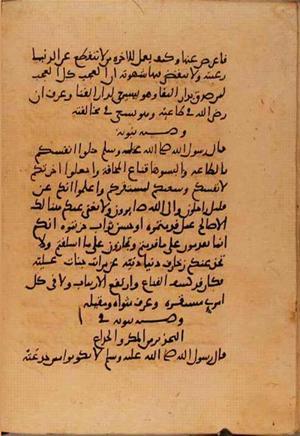 فاعرض عنها وكيف يعمل للاخرة من لا تنقطع عن الدنيا
رغبته ولا تنقضى فيها شهوته ان العجب كل العجب
لمن صدق بدار البقا وهو يسعى لدار الفنا وعرف ان
رضى الله فى طاعته وهو يسعى فى مخالفته
وصيه نبويه
قال رسول الله صلى الله عليه وسلم حلوا انفسكم
بالطاعه والبسوها قناع المخافة واجعلوا اخرتكم
لانفسكم وسعيكم لمستقركم واعلموا انكم عن
قليل راحلون والى الله صايرون ولا يغنى عنكم هنالك
الا صالح عمل قدمتموه او حسن ثواب حزتموه انكم
انما تقدمون على ما قدمتم وتجازون على ما اسلفتم ولا
تخدعنكم زخارف دنيا دنيه عن مراتب جنات عليه
فكان قد كشف القناع وارتفع الارتياب ولاقى كل
امرئ مستقره وعرف مثواه ومقيله
وصيه نبويه فى
التحذير من المكر والخداع
قال رسول الله صلى الله عليه وسلم لا تكونوا ممن خدعته